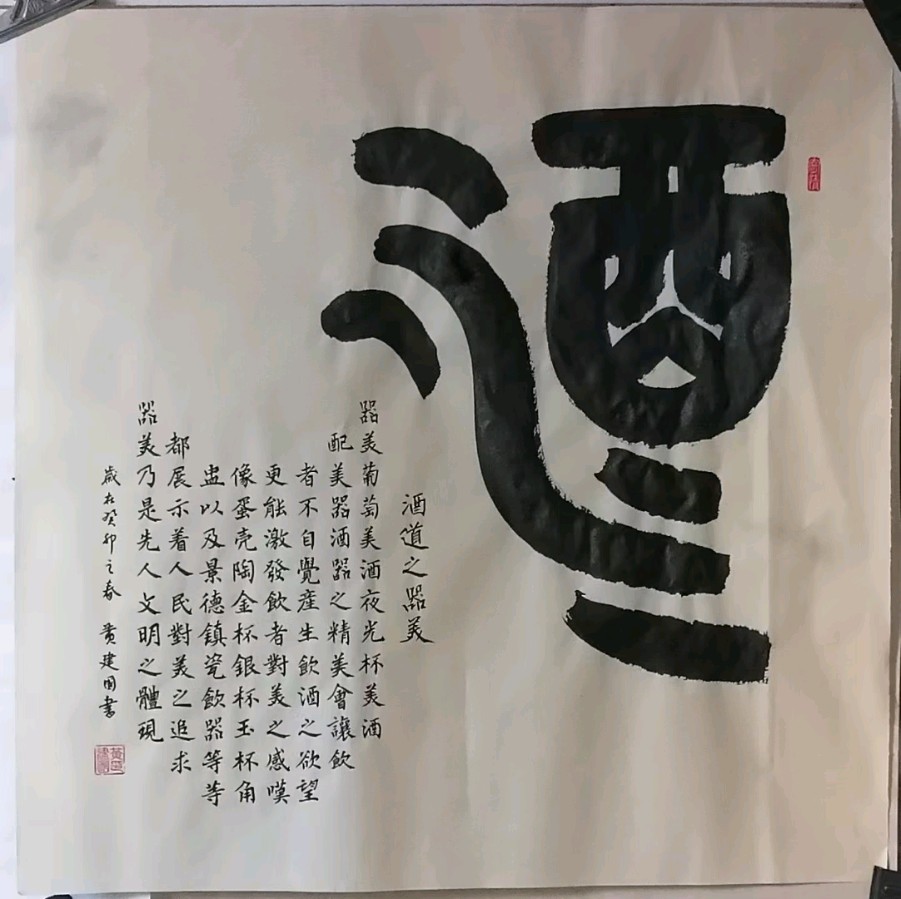 酒
酒道之器美
器美葡萄美酒夜光杯美酒
配美器酒器之精美會讓飲
者不自覺産生飲酒之欲望
更能激發飲者對美之感嘆
像蛋壳陶金杯銀杯玉杯角
盅以及景德鎮瓷飲器等等
都展示着人民對美之追求
器美乃是先人文明之體現
歲在癸卯之春 黄建国書